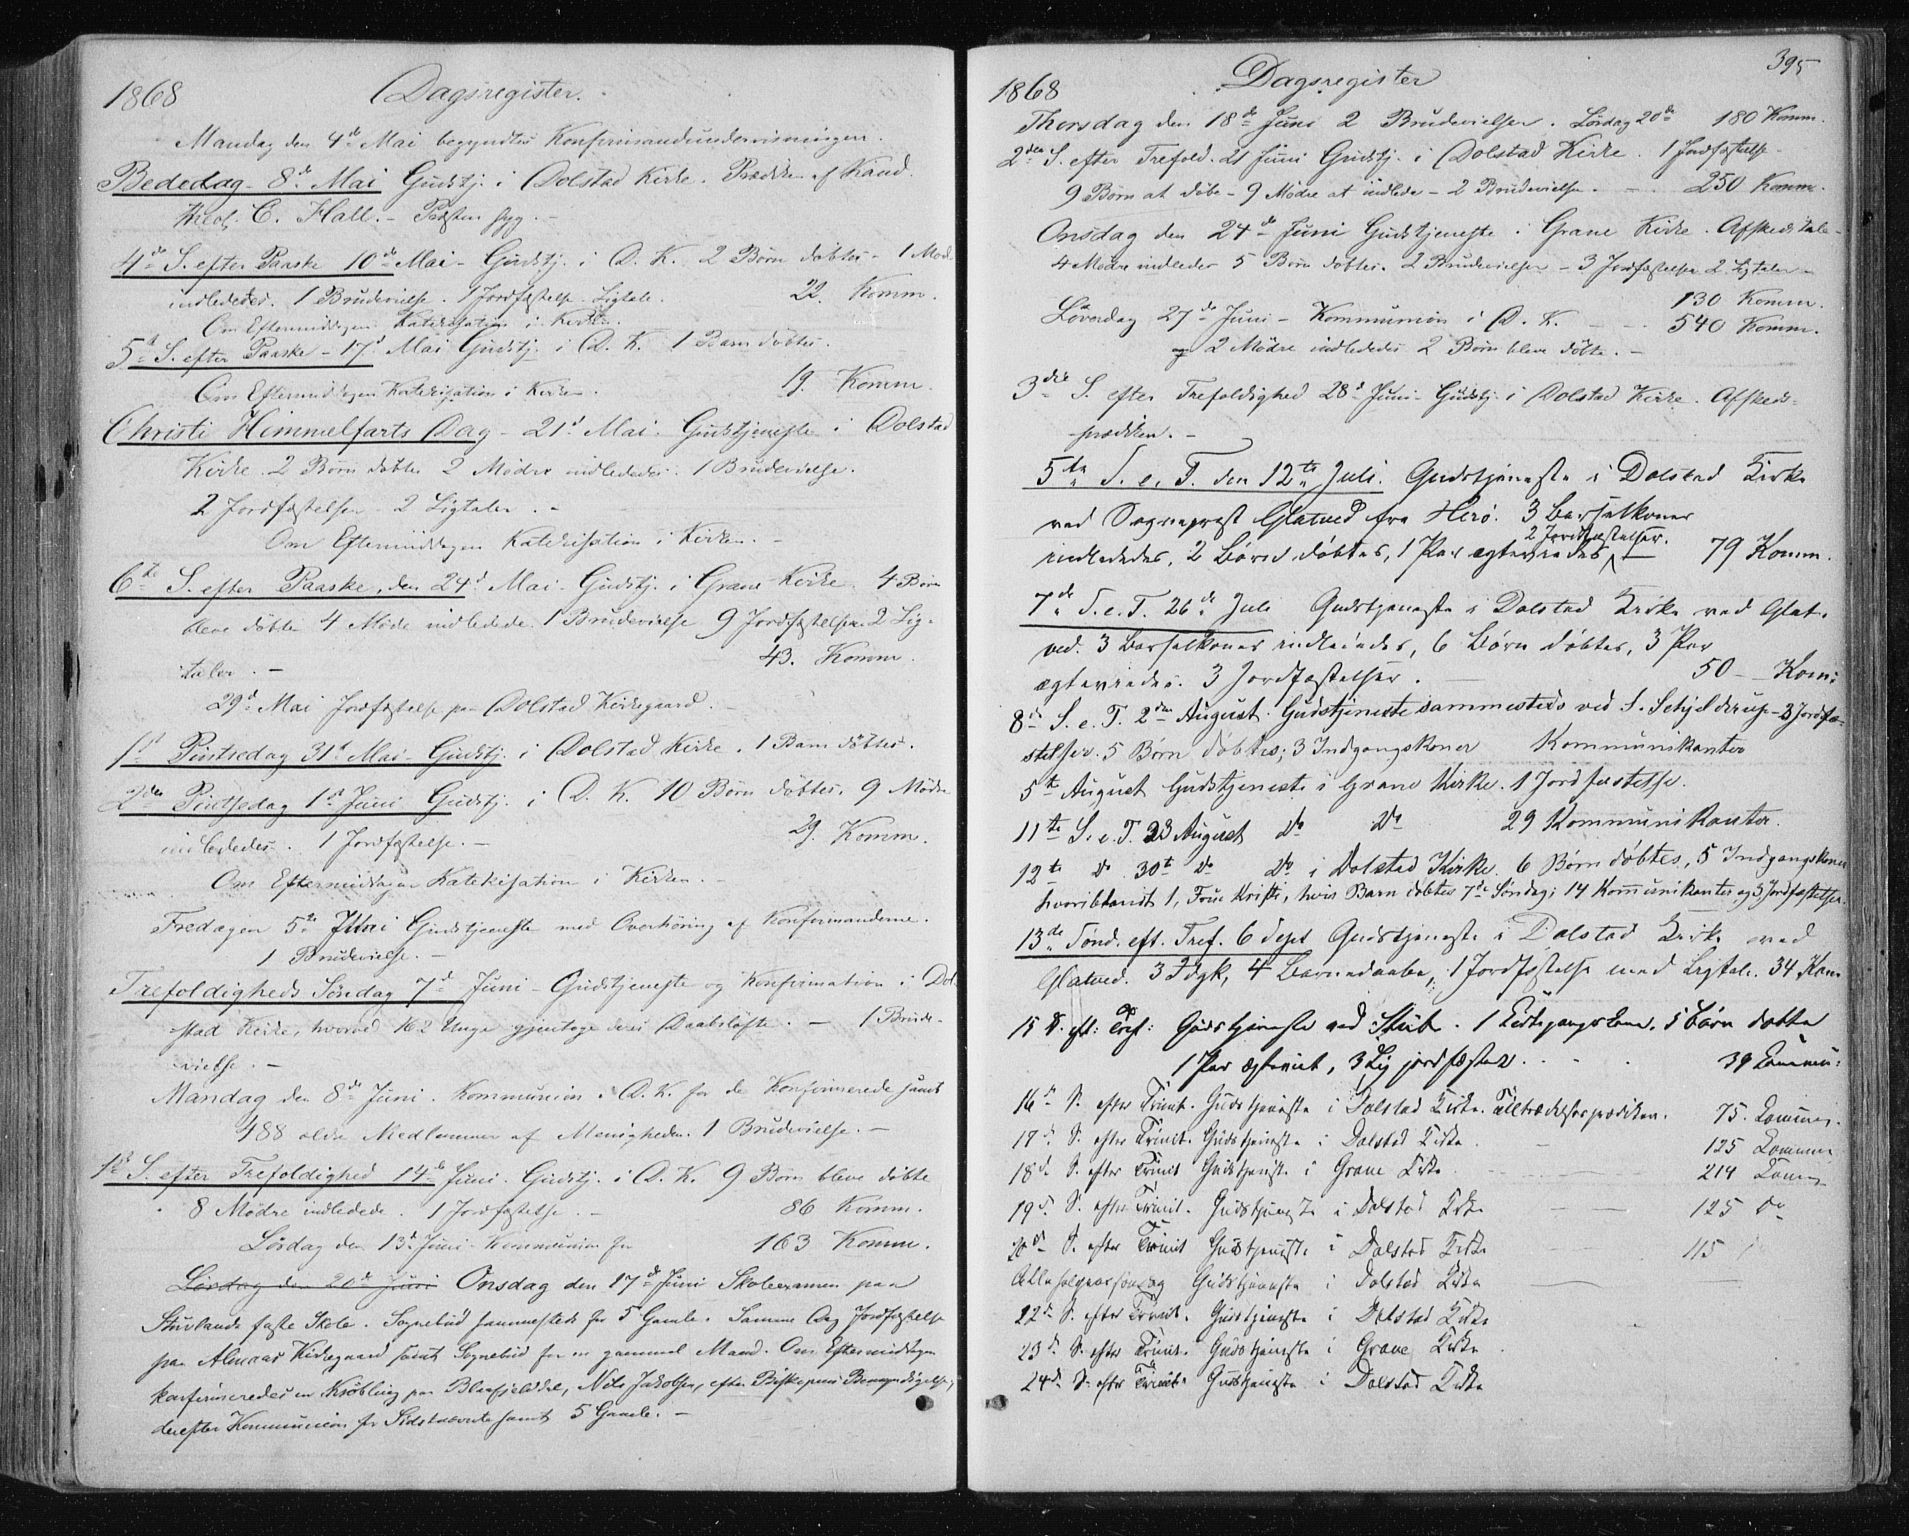 1868 Dagsregister.
Mandag den 4de Mai begyndtes Konfirmandundervisningen.
Bededag - 8de Mai Gudstj. i Dolstad Kirke. Prædiken af Kand.
theol. C. Hall. - Præsten syg. -
4de S. efter Paaske 10de Mai - Gudstj. i D. K. 2 Børn døbtes - 1 Mod.
indlededes. 1 Brudevielse. 1 Jordfæstelse. Ligtale. 22. Komm.
Om Eftermiddagen Katekisation i Kirken.
5te S. efter Paaske - 17d Mai Gudstj. i D. K. 1 Barn døbtes.
Om Eftermiddagen Katekisation i Kirken. 19. Komm.
Christi Himmelfarts Dag - 21d Mai. Gudstjeneste i Dolstad
Kirke. 2 Børn døbtes 2 Mødre indlededes. 1 Brudevielse.
2 Jordfæstelser - 2 Ligtaler. -
Om Eftermiddagen Katekisation i Kirken. -
6te S. efter Paaske, den 24d Mai. Gudstj. i Grane Kirke. 4 Børn
bleve døbte 4 Mødre indledede. 1 Brudevielse 9 Jordfæstelser 2 Lig-
taler. - 43. Komm.
29d Mai Jordfæstelse paa Dolstad Kirkegaard. -
1st Pintsedag 31t Mai - Gudstj. i Dolstad Kirke. 1 Barn døbtes.
2den Pintsedag 1st Juni Gudstj. i D. K. 10 Børn døbtes. 9 Mødre
indlededes. 1 Jordfæstelse. - 29. Komm.
Om Eftermiddagen Katekisation i Kirken. -
Fredagen 5te Juni Gudstjeneste med Overhøring af Konfirmanderne.
1 Brudevielse. -
Trefoldigheds Søndag 7d Juni - Gudstjeneste og Konfirmation i Dol-
stad Kirke, hvorved 162 Unge gjentoge deres Daabsløfte. - 1 Brude-
vielse. -
Mandag den 8de Juni. Kommunion i D. K. for de Konfirmerede samt
488 ældre Medlemmer af Menigheden. 1 Brudevielse. -
1st S. efter Trefoldighed 14de Juni. Gudstj. i D. K. 9 Børn bleve døbte
8 Mødre indledede. 1 Jordfæstelse. - 86 Komm.
Lørdag den 13d Juni - Kommunion for 163 Komm.
Lørdag den 20de Juni Onsdag den 17de Juni Skoleexamen paa
Stuvlands faste Skole. Sognebud sammesteds for 5 Gamle. Samme Dag Jordfæstelse
paa Almaas Kirkegaard samt Sognebud for en gammel Mand. Om Eftermiddagen
konfirmeredes en Krøbling paa Blaafjelddal, Nils Jakobsen, efter Biskopens Bemyndigelse,
derefter Kommunion for Sidstnævnte samt 5 Gamle. -
395
1868 Dagsregister
Thorsdag den 18de Juni 2 Brudevielser. Lørdag 20de 180 Komm.
2den S. efter Trefold. 21 Juni Gudstj. i Dolstad Kirke. 1 Jordfæstelse -
9 Børn at døbe - 9 Mødre at indlede - 2 Brudevielse. - 250 Komm.
Onsdag den 24de Juni Gudstjeneste i Grane Kirke. Afskedstale -
4 Mødre indledes 5 Børn døbtes. 2 Brudevielser - 3 Jordfæstelser 2 Ligtaler -
130 Komm.
Løverdag 27de Juni - Kommunion i D. K. - - 540 Komm.
og 2 Mødre indlededes 2 Børn bleve døbte. -
3die S. efter Trefoldighed 28d Juni - Gudstj. i Dolstad Kirke. Afskeds-
prædiken. -
5te S. e. T. den 12te Juli. Gudstjeneste i Dolstad Kirke
ved Sogneprest Glatved fra Herø. 3 Barselkoner
2 Jordfæstelser.
indlededes, 2 Børn døbtes, 1 Par egteviedes, 79 Komm.
7de S. e. T. 26de Juli Gudstjeneste i Dolstad Kirke ved Glat-
ved. 3 Barselkoner indlededes, 6 Børn døbtes, 3 Par
egteviedes. 3 Jordfæstelser. 50 - Kom:
8de S. e. T. 2den August. Gudstjeneste sammesteds ved S. Schjelderup - 3 Jordfæ-
stelser. 5 Børn døbtes; 3 Indgangskoner Kommunikanter
5te August Gudstjeneste i Grane Kirke. 1 Jordfæstelse.
11te S. e. T. 23 August do do 29 Kommunikanter.
12te do 30t do do i Dolstad Kirke. 6 Børn døbtes, 5 Indgangskoner
hvoriblandt 1, hvis Barn døbtes 7de Søndag; 14 Kommunikanter og 3 Jordfæstelser.
13de Sønd. eft. Tref. 6 Sept Gudstjeneste i Dolstad Kirke ved
Glatved. 3 Idgk, 4 Barnedaaber, 1 Jordfæstelse med Ligtale. 34 Kom
15 S. eft: Tref: Gudstjeneste ved Stub. 1 Kirkegangskone. 5 Børn døbte
1 Par ægteviet, 3 Lig jordfæstede. 39 Kommu:
16de S. efter Trinit. Gudstjeneste i Dolstad Kirke. Tiltrædelsesprædiken. 75. Kommun.
17d. S. efter Trinit. Gudstjeneste i Dolstad Kirke. - 125 Kommun
18d. S. efter Trinit Gudstjeneste i Grane Kirke - - 214 Komm
19d. S. efter Trinit. Gudstjeneste i Dolstad Kirke - - 125 do
20de S. efter Trinit Gudstjeneste i Dolstad Kirke - - 115
Allehelgensøndag Gudstjeneste i Dolstad Kirke
22de S. efter Trinit. Gudstjeneste i Dolstad Kirke
23d S. efter Trinit. Gudstjeneste i Grane Kirke
24d. S. efter Trinit. Gudstjeneste i Dolstad Kirke